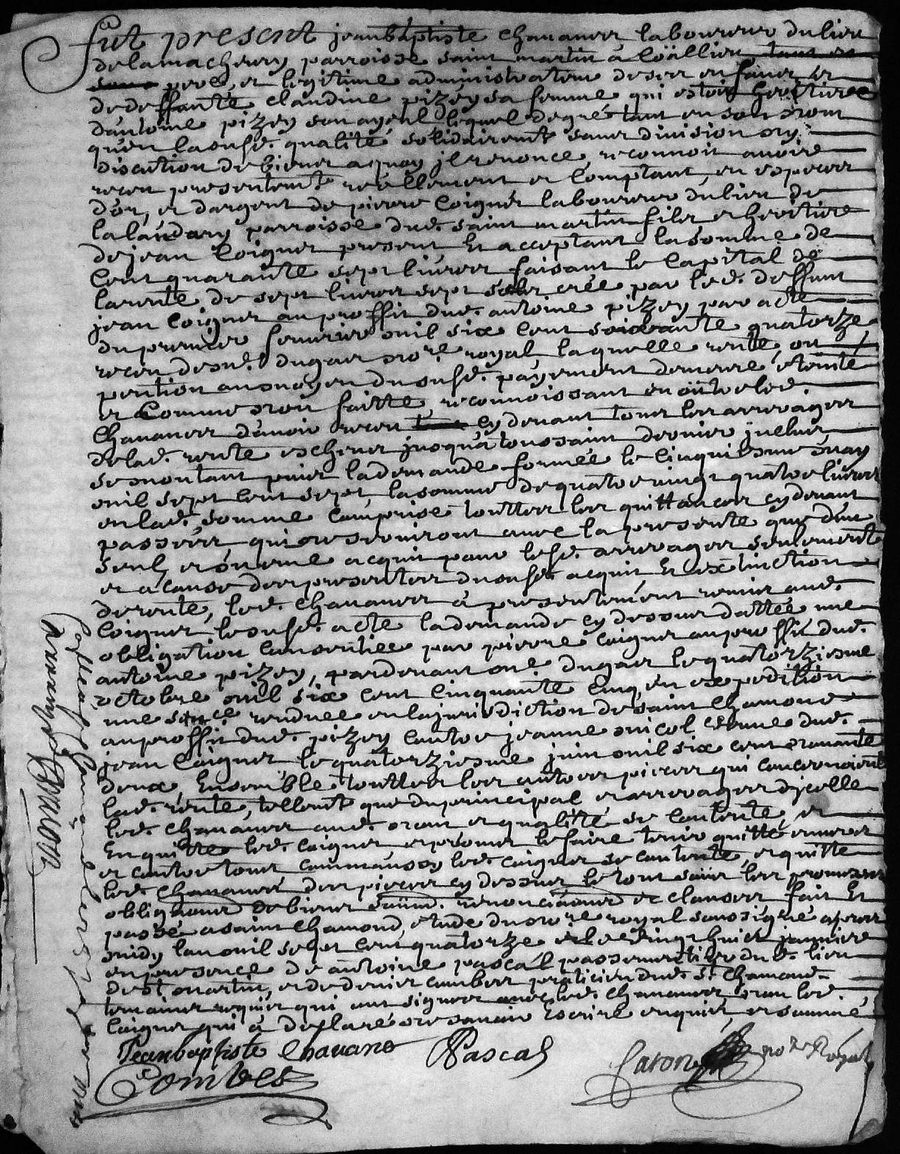 fut present jeanbaptiste chavanes laboureur du lieu
de lamachery parroisse saint martin à Coällieu
pere, et legitime administrateur de ses enfans et
de deffante claudine pizey sa femme qui estoit heritiere
dantoine pizey son ayeul lequel de gré tant en son nom
qu'en lasusd. qualité solidairemt sans division ny
discution de biens aquoy il renonce, reconnoit avoir
receu presentemt reellement et comptant en especes
d'or, et dargent de pierre Coignet laboureur du lieu de
la landary parroisse dud. saint martin fils et heritier
de jean Coignet present et acceptant la somme de
Cent quarante sept livres faisant le Capital de
larente de sept livres sept sols crée par led. deffunt
jean Coignet au proffit dud. antoine pizey par acte
du premier fevrier mil six cent soixante quatorze
receu de me. dugas nore. royal, laquelle rente, ou
pention au moyen du susd. payement demeure éteinte
et Comme non faitte reconnoissant en outre led.
Chavanes d'avoir receu cy devant tous les arrerages
de lad. rente escheus jusqua toussaint dernier inclus
se montant puis lademande formée le cinquiesme may
mil sept cent sept, la somme de quatre vingt quatre livres
en lad. somme comprise touttes les quittances cy devant
passées qui ne serviront avec la presente que d'un
seul et mesme acquit pour lesd. arrerages seulement
et acause des presentes du susd. acquit et extinction
de rente, led. chavanes à presentement remis aud.
Coignet lesusd. acte la demande cy dessus dattée une
obligation consentie par pierre Coignet au proffit dud.
antoine pizey, pardevant me dugas le quatorziesme
octobre mil six cent cinquante cinq, en expedition
une snce rendue en la jurisdiction de saint chamond
au proffit dud. pizey contre jeanne nicol femme dud.
jean Coignet le quatorziesme juin mil six cent
deux, Ensemble touttes les autres pieces qui concernoient
lad. rente, tellemt que du principal et arrerages d'ycelle
led. chavanes aud. nom et qualité se contente, et
En quitte led. Coignet et promet le faire tenir quitte envers
et contre tous comme aussy led. Coignet se contente, et quitte
led. chavanes des pieces cy dessus le tout sous les promesses
obligaons de biens soûm. renonciaons et clauses fait et
passé a saint chamond, étude du nore. royal soussigné apres
midy lan mil sept cent quatorze et le vingt huit janvier
en presence de antoine pascal passementier du lieu
de st martin, et de denier combert praticien dud. st chamond
temoins requis qui ont signés avec led. chavanes non led.
Coignet qui à declaré ne sçavoir Escrire enquis et sommé
Jeanbaptiste Chavane
Pascal
Combet
Caron nore Royal